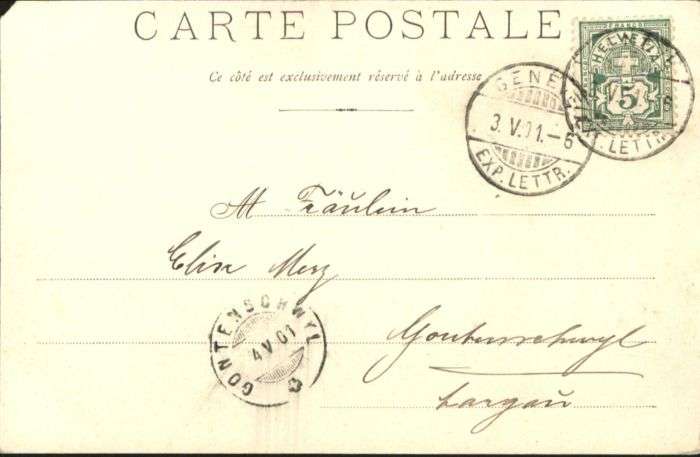 CARTE POSTALE
Ce côté est exclusivement réservé à l'adresse
FRANCO
HELVETIA
5
EXP. LETTR.
GENÈ
3. V. 01. – 6
EXP. LETTR.
Fräulein
Elise Merz
GONTENSCHWYL
4 V 01
Gontenschwyl
Aargau